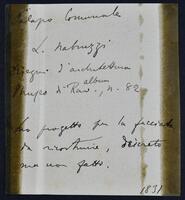 Palazzo Comunale
L. Nabruzzi
Disegni d'architettura
album
Museo di Rav., n. 82
Suo progetto per la facciata
da ricostruire, decreto
ma non fatto.
1831